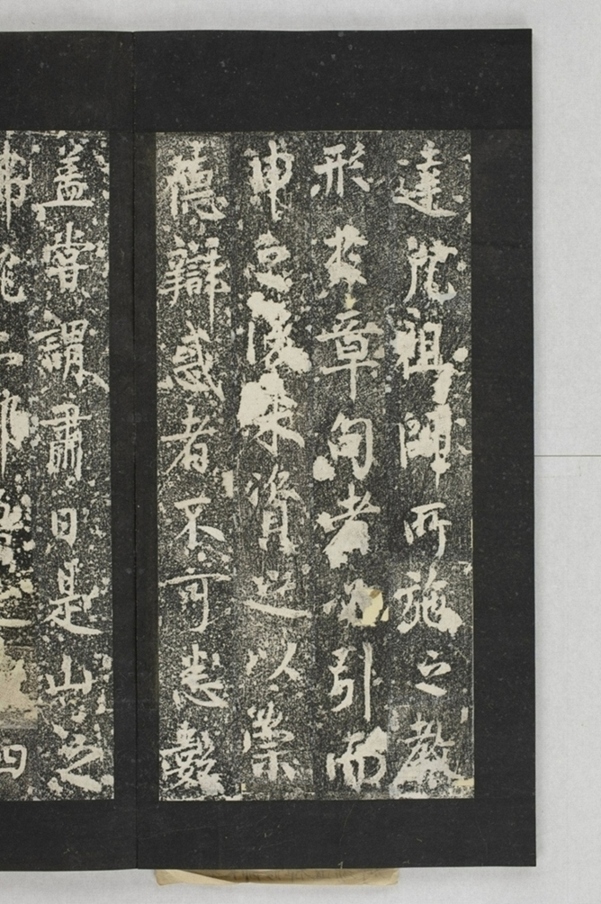 達祖師所施之教
形於章句者必引而
申之後來資之以崇
德辯惑者不可悉數
蓋嘗謂肅曰是山之